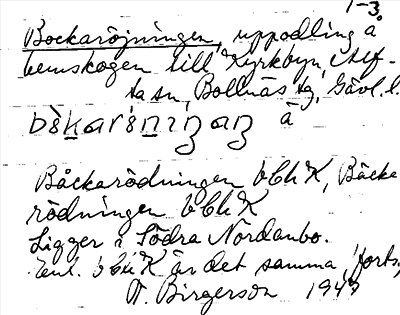 1-3
Bockaröjningen, uppodling å
hemskogen till Kyrkbyn, Alf-
ta sn, Bollnäs tg, Gävl. l.
å
Båckarödningen bbhK, Bäcka
rödningen bbhK
Ligger i Södra Nordanbo.
Enl. bbhK är det samma, forts.
T. Birgerson 1947